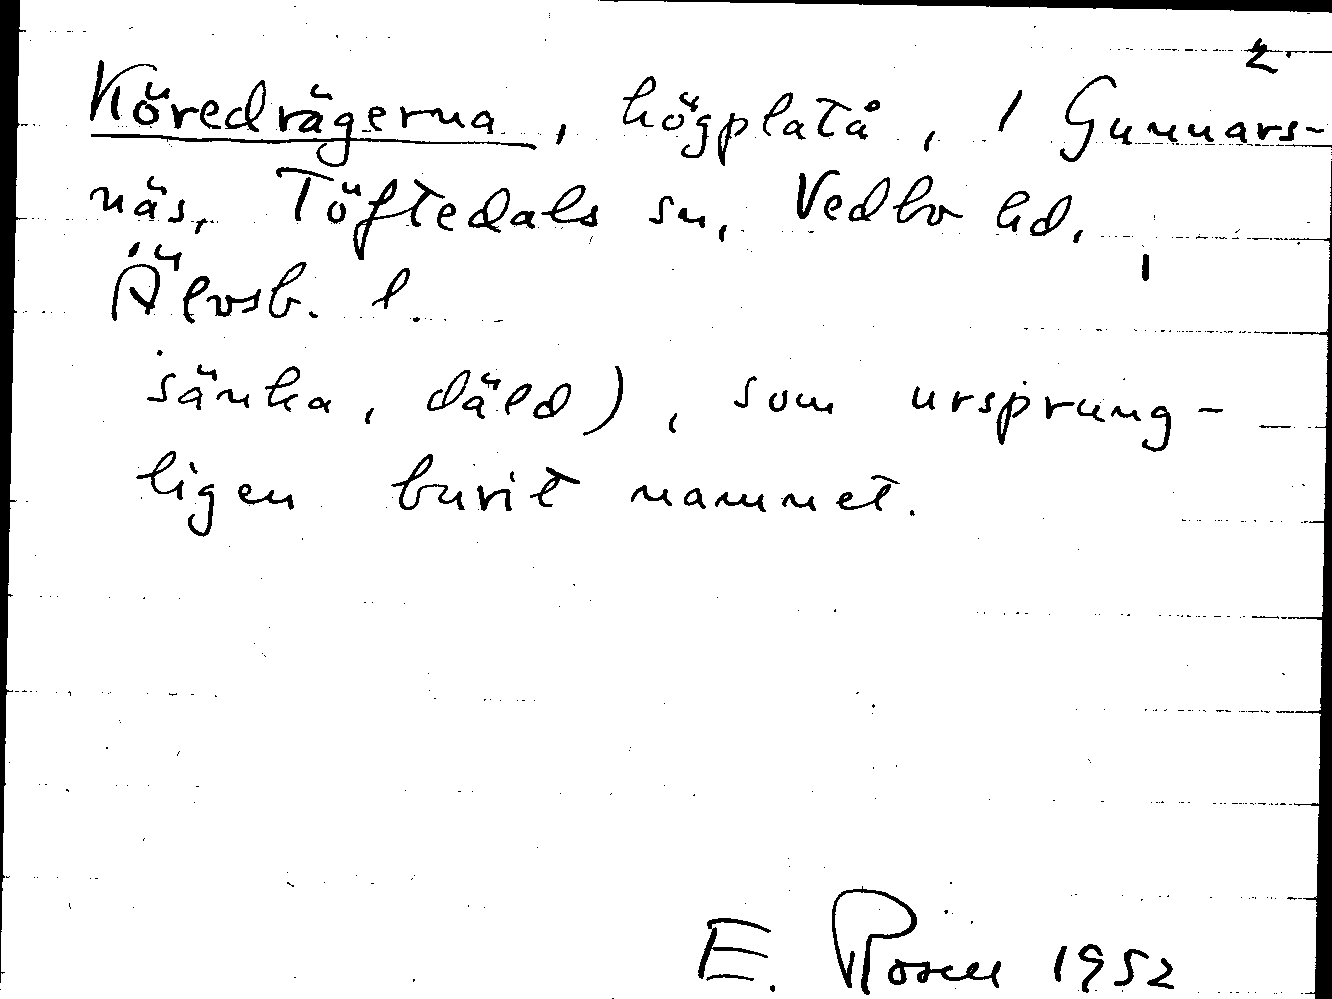 2.
Köredrägerna, högplatå, 1 Gunnars-
näs, Töftedals sn, Vedbo hd,
Älvsb. l.
sänka, däld), som ursprung-
ligen burit namnet.
E. Rosell 1952